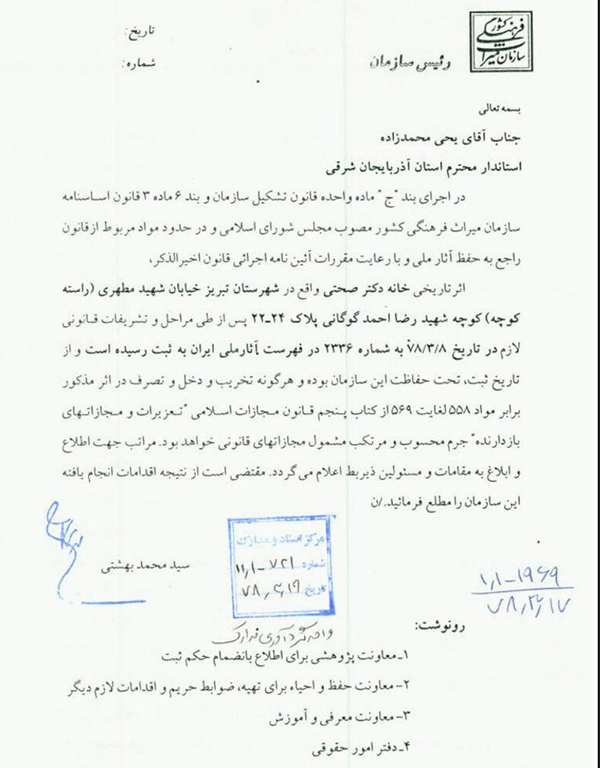 سازمان میراث فرهنگی کشور
تاریخ:
شماره:
رئیس سازمان
بسمه تعالی
جناب آقای یحی محمدزاده
استاندار محترم استان آذربایجان شرقی
در اجرای بند "ج" ماده واحده قانون تشکیل سازمان و بند ۶ ماده ۳ قانون اساسنامه
سازمان میراث فرهنگی کشور مصوب مجلس شورای اسلامی و در حدود مواد مربوط از قانون
راجع به حفظ آثار ملی و با رعایت مقررات آئین نامه اجرائی قانون اخیرالذکر،
اثر تاریخی خانه دکتر صحتی واقع در شهرستان تبریز خیابان شهید مطهری (راسته
کوچه) کوچه شهید رضا احمد گوگانی پلاک ۲۴-۲۲ پس از طی مراحل و تشریفات قانونی
لازم در تاریخ ۷۸/۳/۸ به شماره ۲۳۳۶ در فهرست آثار ملی ایران به ثبت رسیده است و از
تاریخ ثبت، تحت حفاظت این سازمان بوده و هرگونه تخریب و دخل و تصرف در اثر مذکور
برابر مواد ۵۵۸ لغایت ۵۶۹ از کتاب پنجم قانون مجازات اسلامی "تعزیرات و مجازاتهای
بازدارنده" جرم محسوب و مرتکب مشمول مجازاتهای قانونی خواهد بود. مراتب جهت اطلاع
و ابلاغ به مقامات و مسئولین ذیربط اعلام می گردد. مقتضی است از نتیجه اقدامات انجام یافته
این سازمان را مطلع فرمائید./ن
مرکز اسناد و مدارک
شماره ۷۲۱-۱۱,۱
تاریخ ۷۸,۴,۱۹
سید محمد بهشتی
۱,۱-۱۹۶۹
۷۸,۳,۱۷
رونوشت:
واحد گردآوری مدارک
۱-معاونت پژوهشی برای اطلاع بانضمام حکم ثبت
۲-معاونت حفظ و احیاء برای تهیه، ضوابط حریم و اقدامات لازم دیگر
۳-معاونت معرفی و آموزش
۴-دفتر امور حقوقی